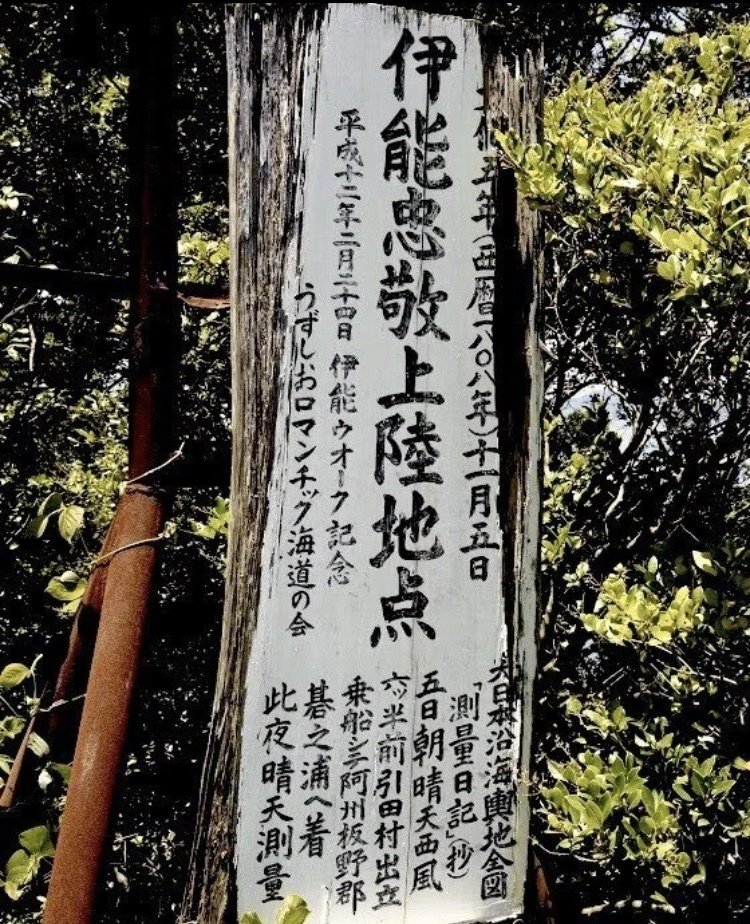 文化五年(西暦一八〇八年)十一月五日
伊能忠敬上陸地点
平成十二年二月二十四日 伊能ウオーク記念
うずしおロマンチック海道の会
大日本沿海輿地全図
「測量日記」(抄)
五日朝晴天西風
六ッ半前引田村出立
乗船シテ阿州板野郡
碁之浦へ着
此夜晴天測量